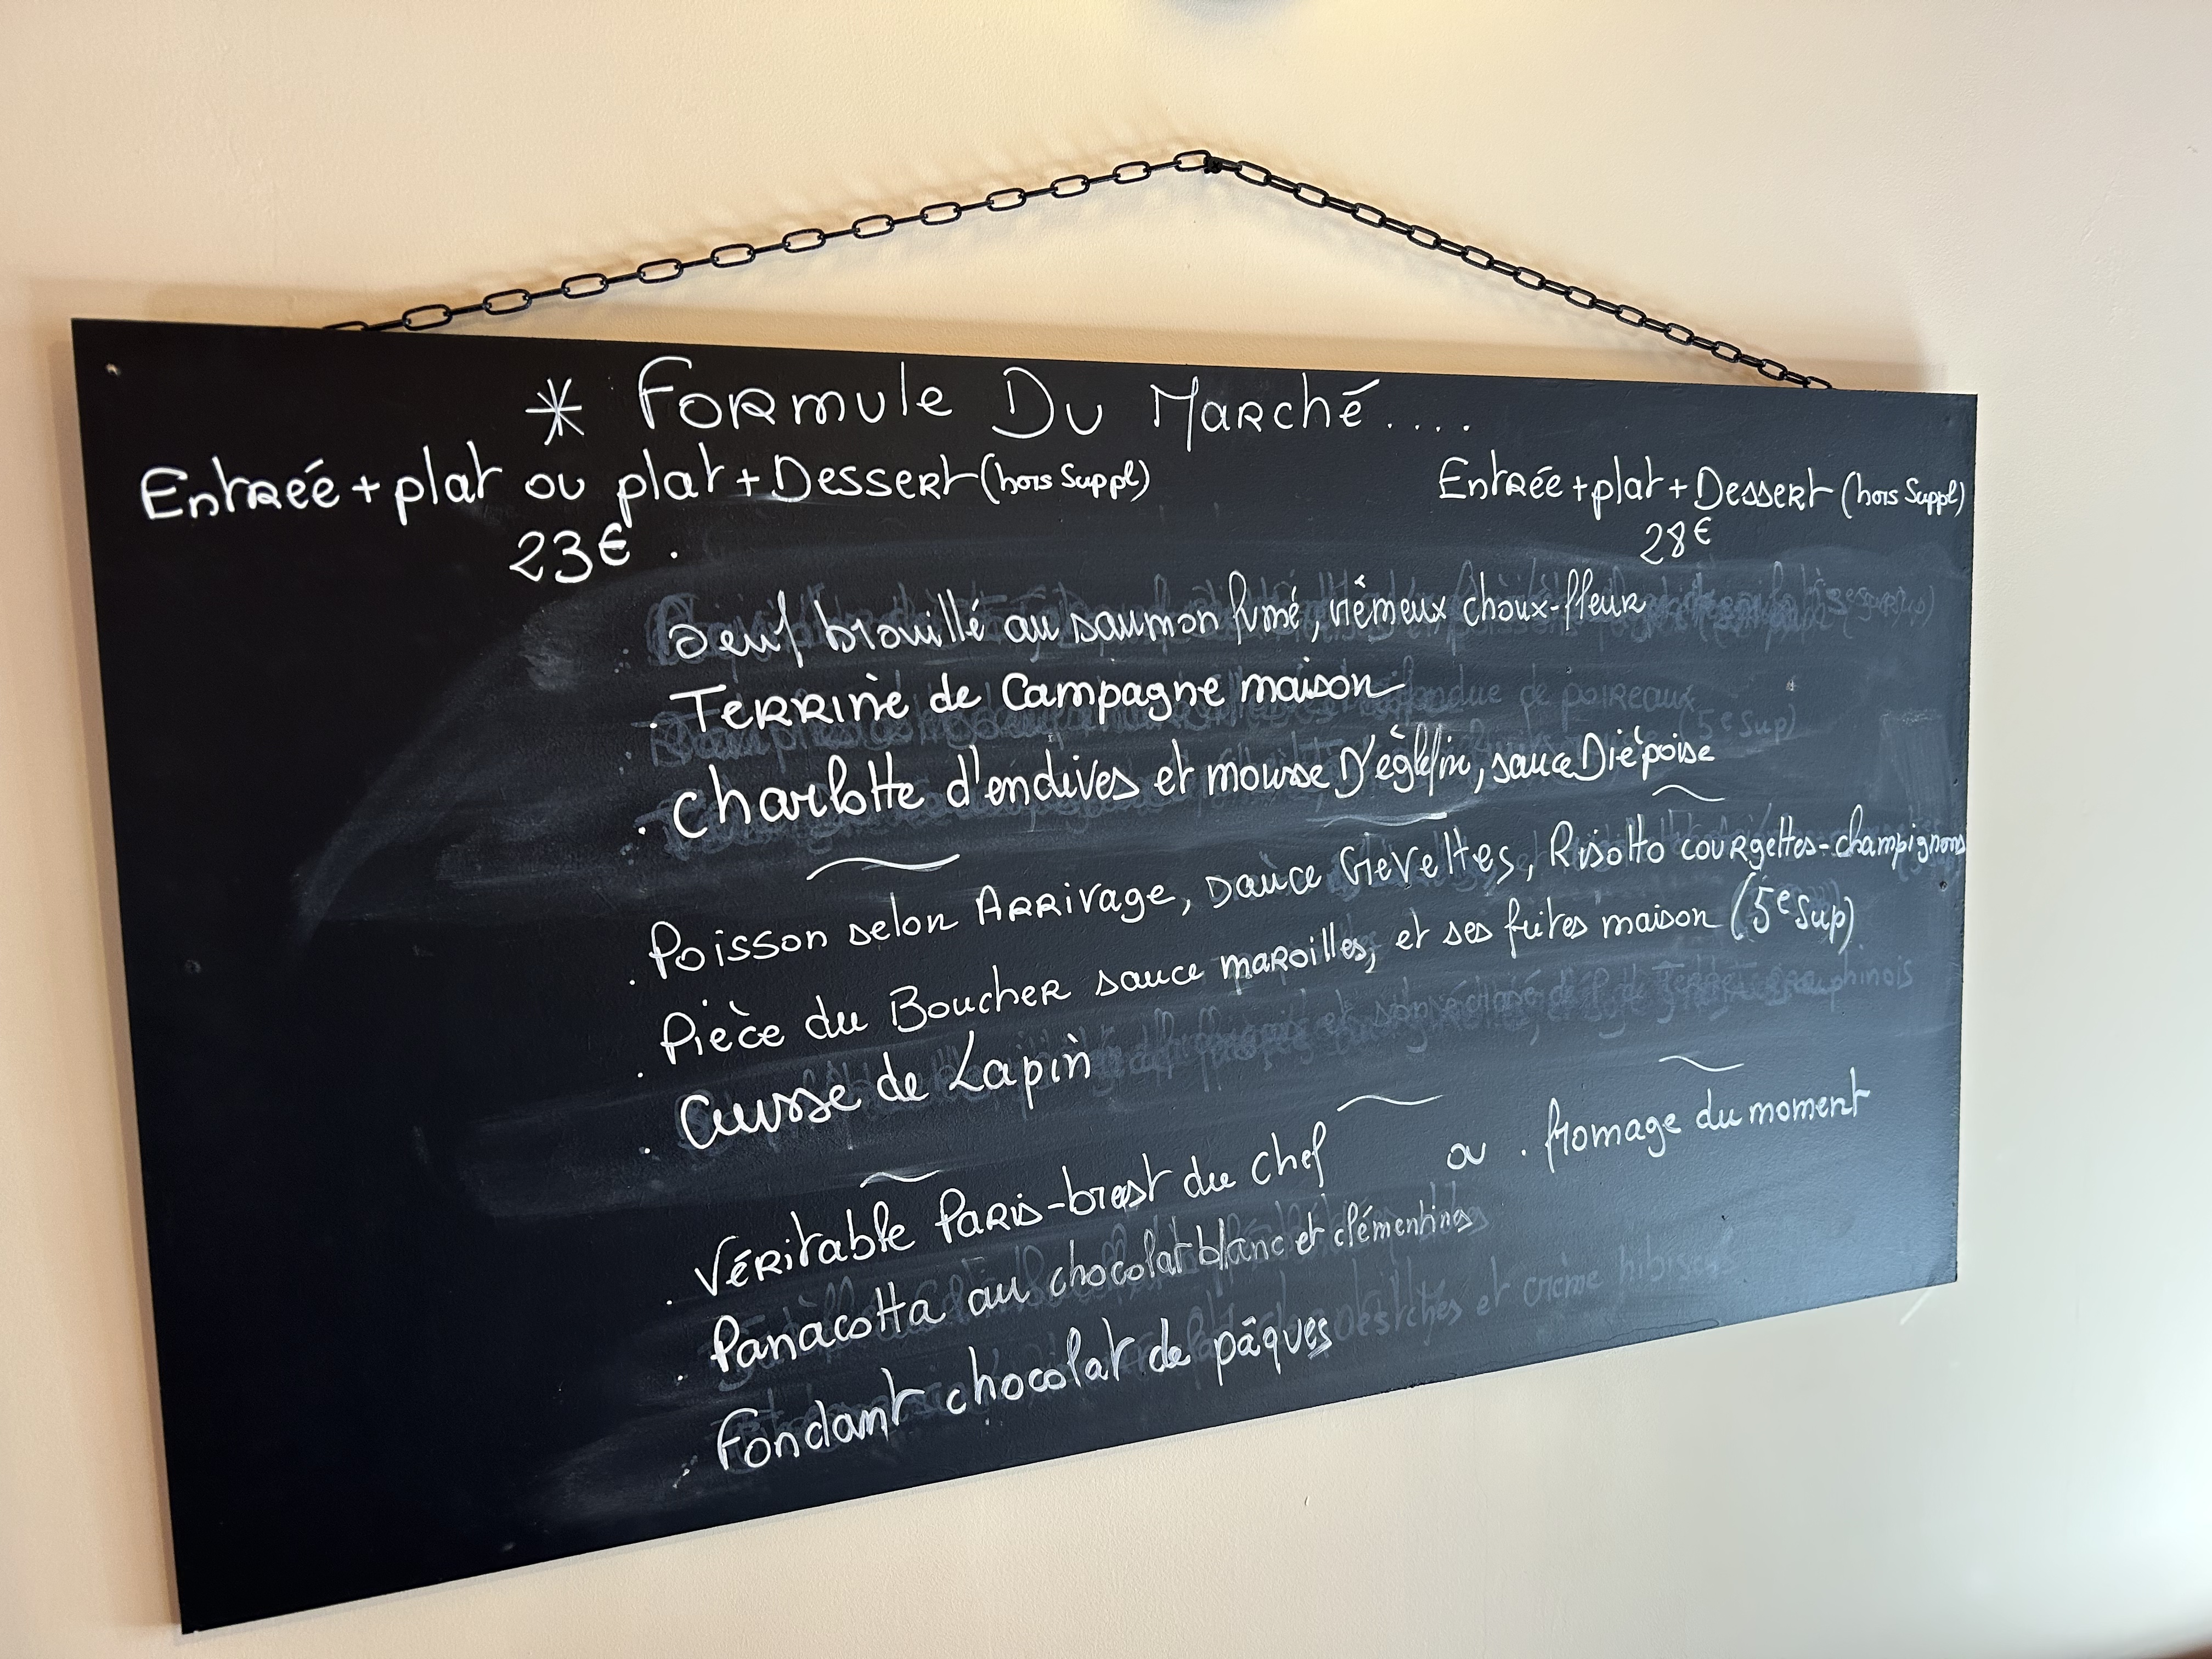 * Formule Du Marché....
Entrée + plat ou plat + Dessert (hors Suppl)
23€.
Entrée + plat + Dessert (hors Suppl)
28€
. Oeuf brouillé au saumon fumé, crémeux choux-fleur
. Terrine de Campagne maison
. Charlotte d'endives et mousse D'églefin, sauce Diépoise
. Poisson selon Arrivage, sauce Crevettes, Risotto courgettes-champignons
. Pièce du Boucher sauce maroilles, et ses frites maison (5€ Sup)
. Cuisse de Lapin
. Véritable Paris-brest du Chef ou . fromage du moment
. Panacotta au chocolat blanc et clémentines
. Fondant chocolat de pâques